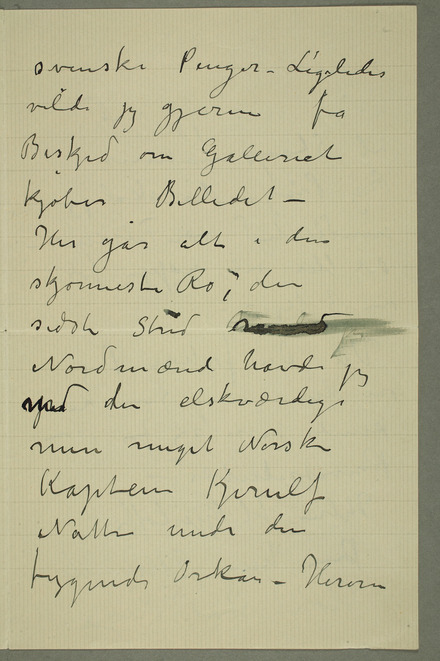 svenske Penger – Ligeledes
vilde jeg gjerne fa
Beskjed om Galleriet
kjøber Billedet –
Her går alt i den
skjønneste Ro, den
sidste Strid
Nordmænd havde jeg
med den elskværdige
men meget Norske
Kaptein Kjerulf
Natten under den
frygende Orkan – Herom